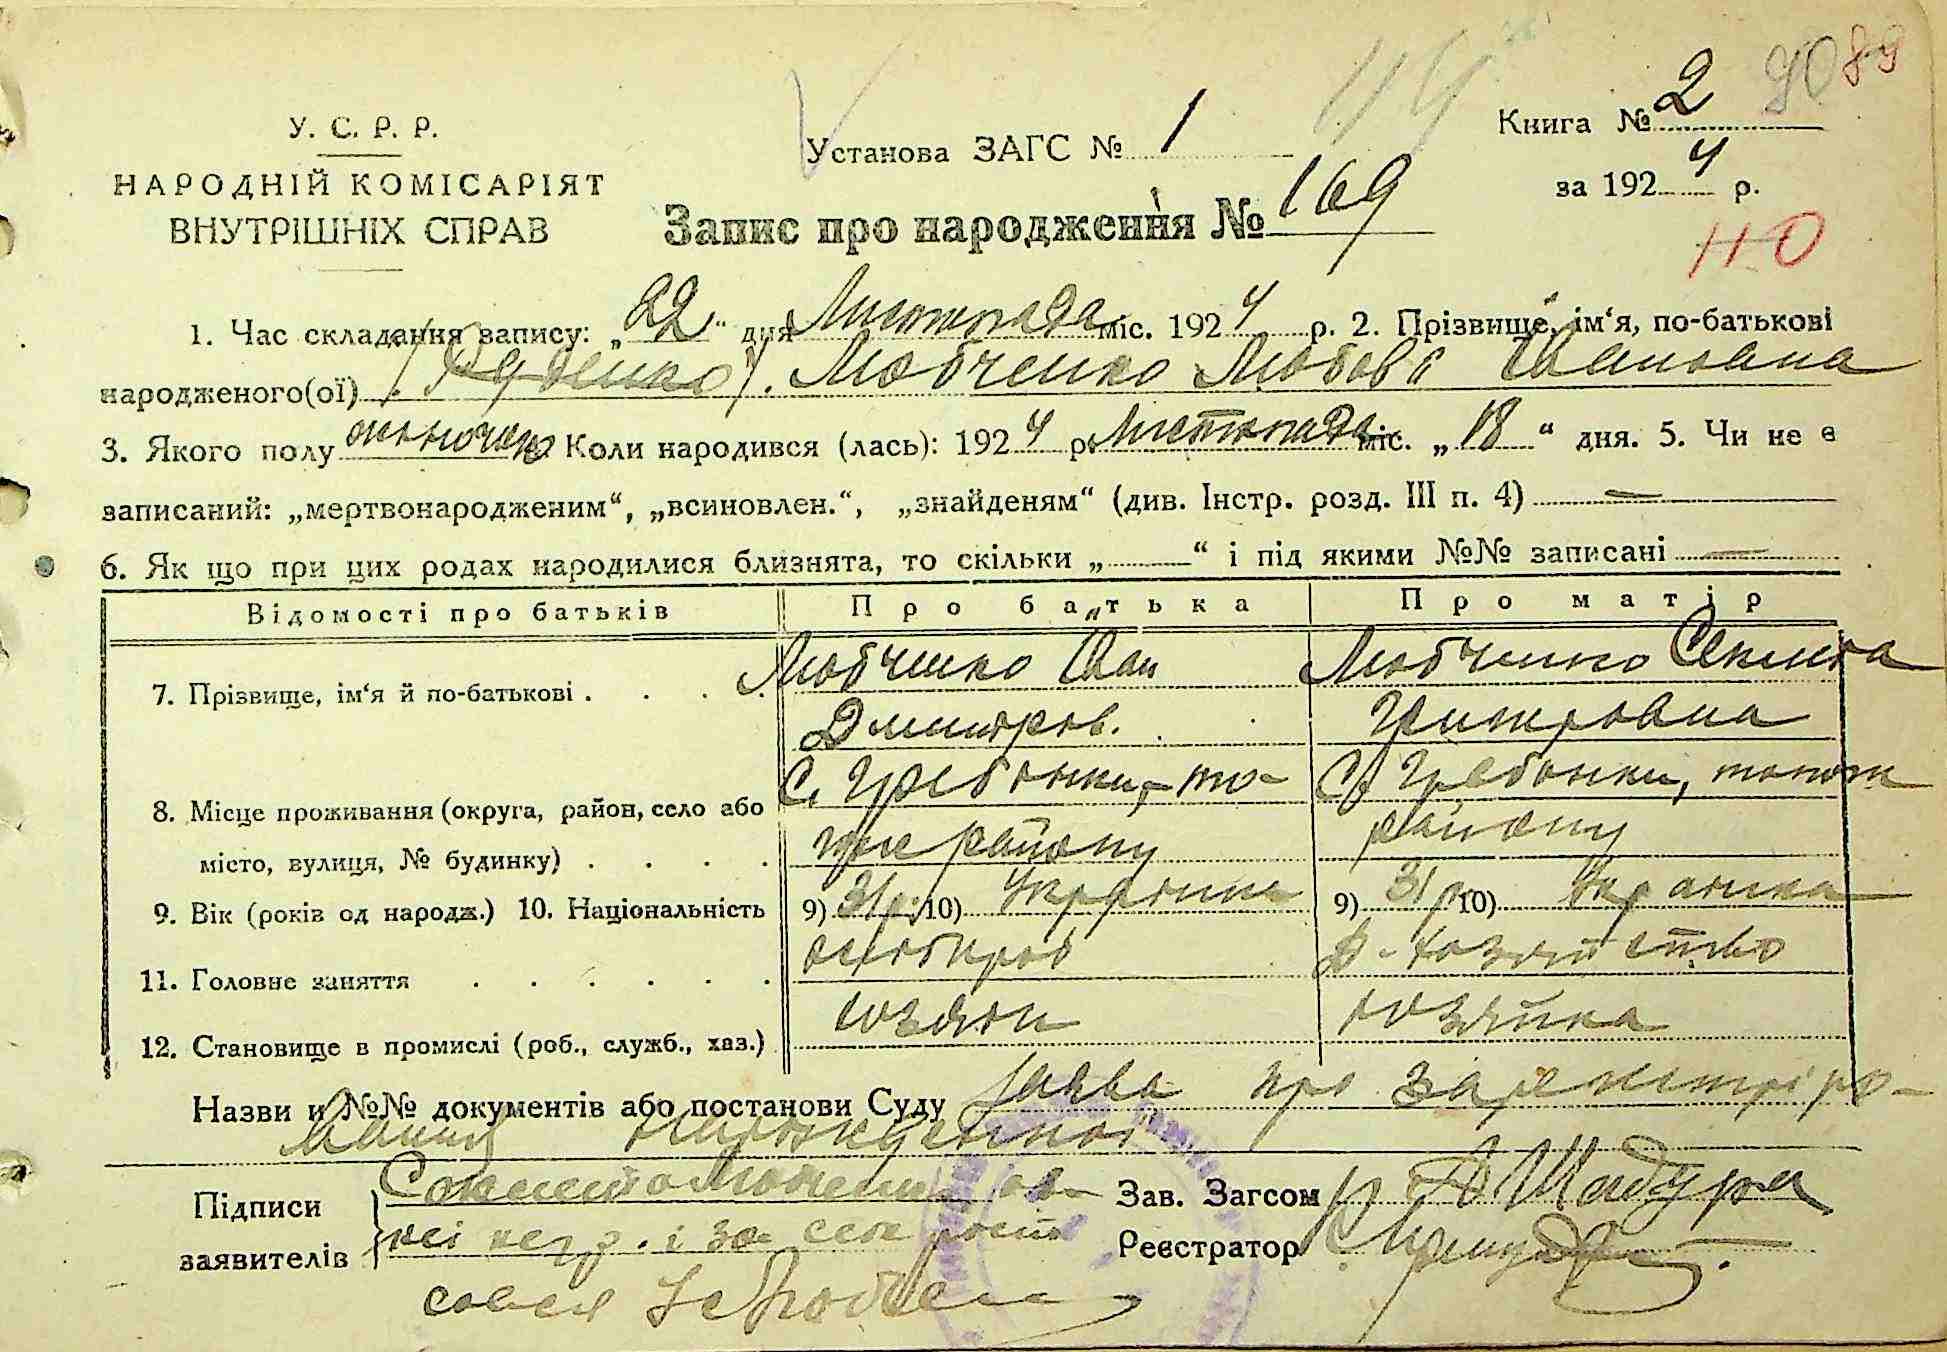 90 89
У. С. Р. Р.
НАРОДНІЙ КОМІСАРІЯТ
ВНУТРІШНІХ СПРАВ
Установа ЗАГС № 1
Книга № 2
за 1924 р.
Запис про народження № 169
1. Час складання запису: „22" дня Листопада міс. 1924 р. 2. Прізвище, ім'я, по-батькові
народженого(ої) Любченко Любовь Ивановна
3. Якого полу жіночого Коли народився (лась): 1924 р. Листопада міс. „18" дня. 5. Чи не є
записаний: „мертвонародженим", „всиновлен.", „знайденям" (див. Інстр. розд. III п. 4) —
6. Як що при цих родах народилися близнята, то скільки „—" і під якими №№ записані —
Відомості про батьків Про батька Про матір
7. Прізвище, ім'я й по-батькові . . . . Любченко Иван Любченко
Дмитров.
8. Місце проживання (округа, район, село або С. Гребонки, то- С. Гребонки, того ж
місто, вулиця, № будинку) . . . . го же району району
9. Вік (років од народж.) 10. Національність 9) 31 р. 10) Українец 9) 31 р. 10) Українка
11. Головне заняття . . . . . . хлібороб д-хозяйство
12. Становище в промислі (роб., служб., хаз.) хозяин хозяйка
Назви и №№ документів або постанови Суду заява про зарегистріро-
вання
Підписи
заявителів
Зав. Загсом Шадура
Реєстратор